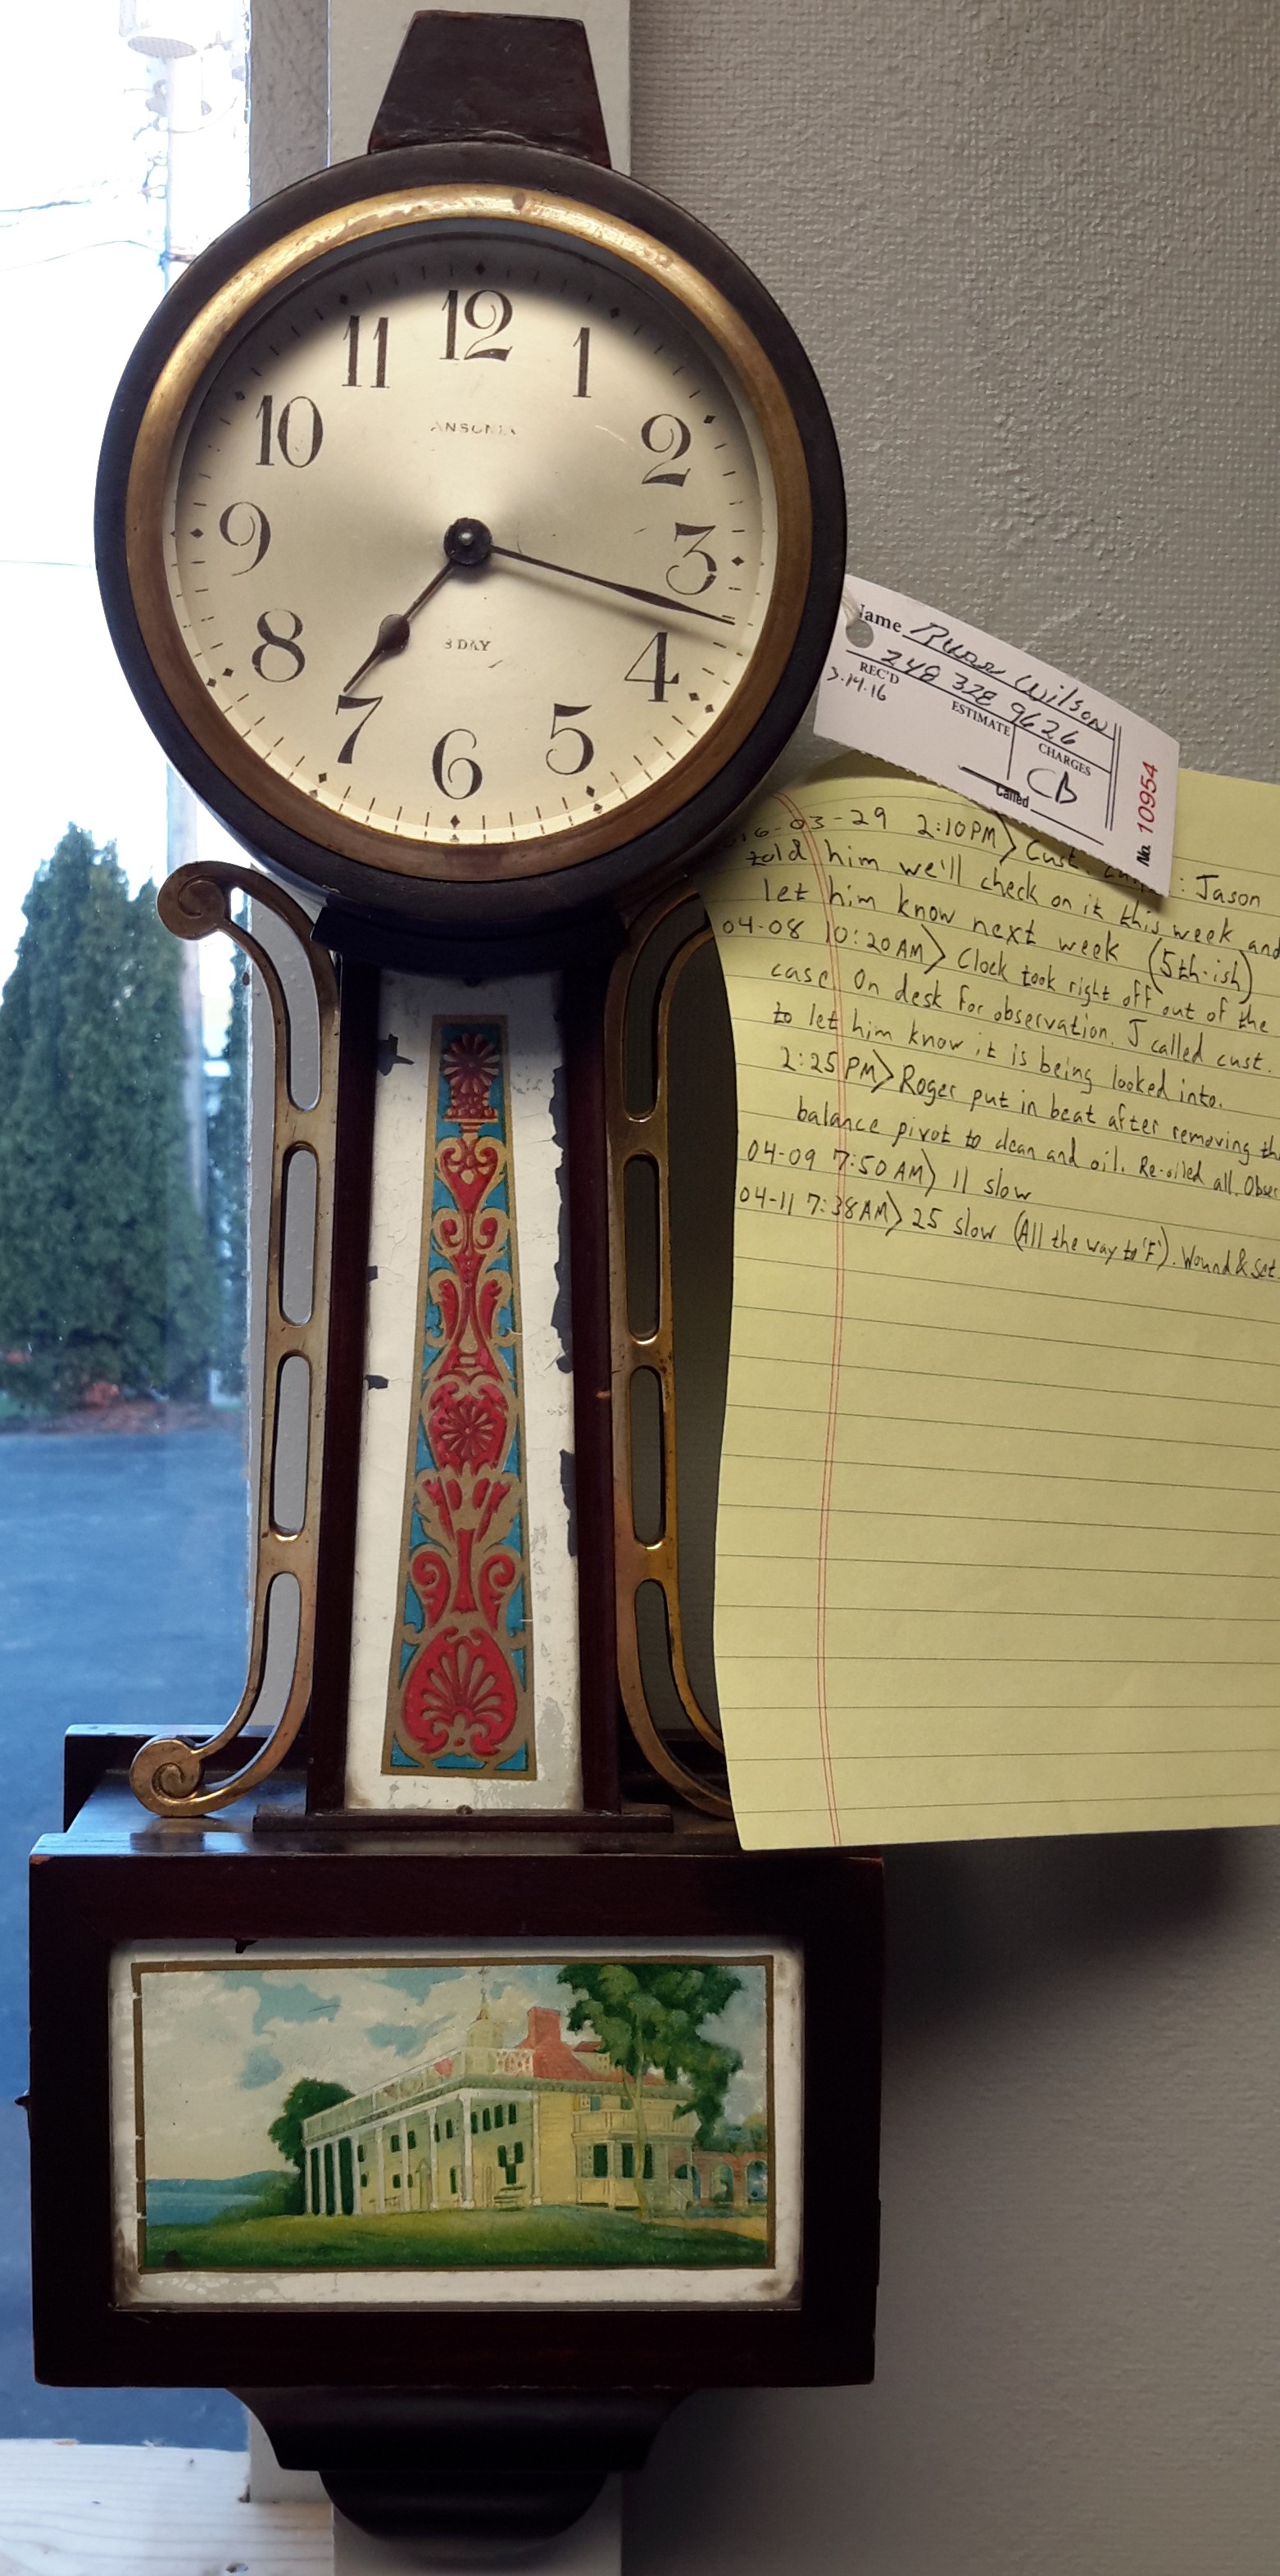 12
11
1
10
2
ANSONIA
9
3
8
8 DAY
4
7
5
6
Name Russ Wilson
248 328 9626
REC'D
3.14.16
ESTIMATE
CHARGES
CB
Called
No. 10954
16-03-29 2:10PM> Cust. : Jason
told him we'll check on it this week and
let him know next week (5th-ish)
04-08 10:20AM> Clock took right off out of the
case. On desk for observation. J called cust.
to let him know it is being looked into.
2:25PM> Roger put in beat after removing th
balance pivot to clean and oil. Re-oiled all. Obser
04-09 7:50AM> 11 slow
04-11 7:38AM> 25 slow (All the way to 'F'). Wound & set.